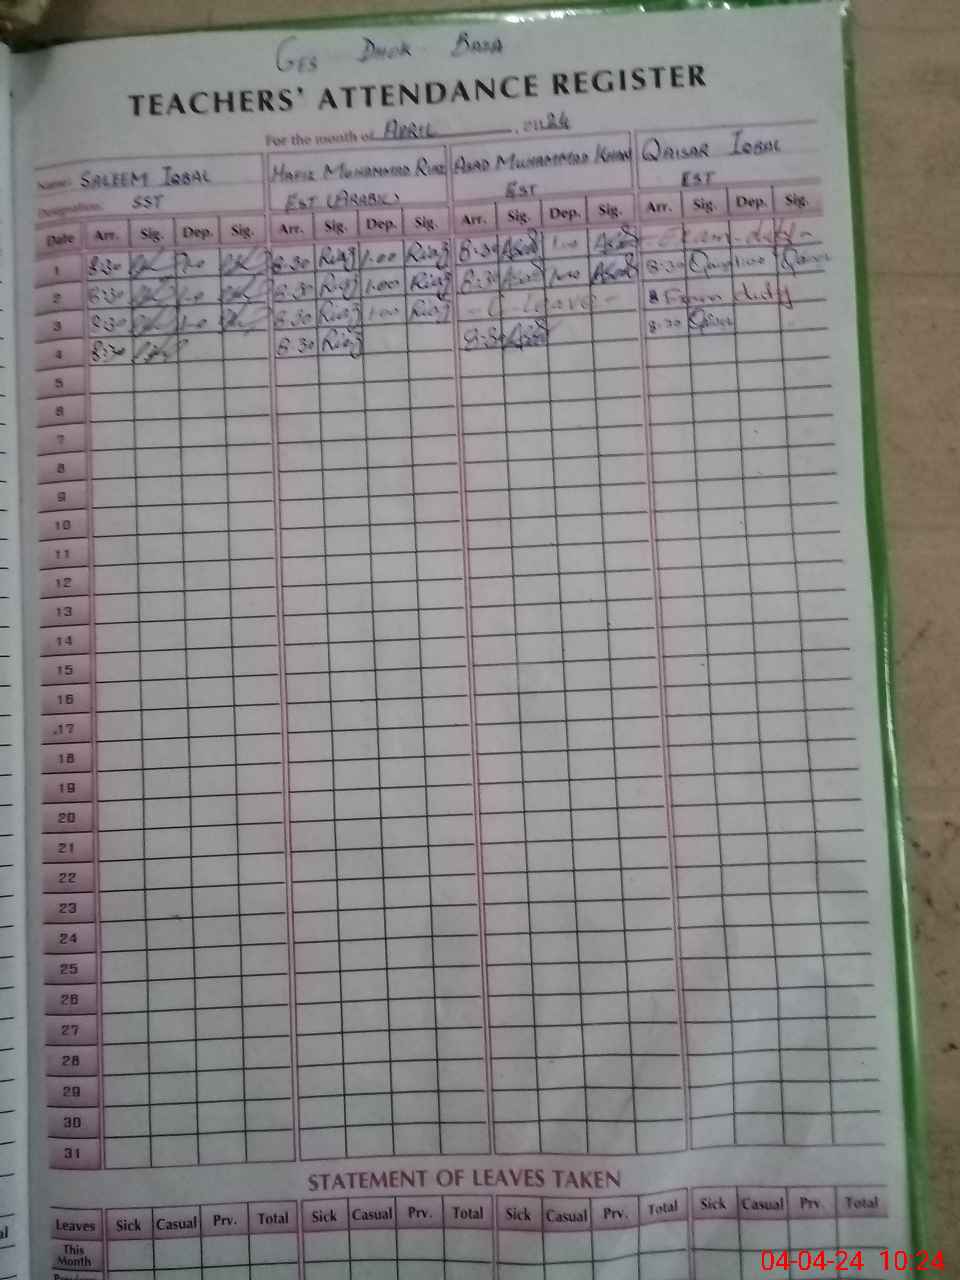 GES DHOK BAZA
TEACHERS' ATTENDANCE REGISTER
For the month of APRIL, 2024
Name: SALEEM IQBAL HAFIZ MUHAMMAD RIAZ ASAD MUHAMMAD KHAN QAISAR IQBAL
Designation: SST EST (ARABIC) EST EST
Date Arr. Sig. Dep. Sig. Arr. Sig. Dep. Sig. Arr. Sig. Dep. Sig. Arr. Sig. Dep. Sig.
1 8:30 1.0 8.30 Riaz 1.00 Riaz 8:30 Asad 1.00 Asad - Exam - duty -
2 8:30 1.0 8.30 Riaz 1.00 Riaz 8:30 Asad 1.00 Asad 8.30 Qaisar 1.00 Qaisar
3 8:30 1.0 8.30 Riaz 1.00 Riaz - C. leave - Exam duty
4 8:30 8.30 Riaz 8:30 Asad 8.30 Qaisar
5
6
7
8
9
10
11
12
13
14
15
16
17
18
19
20
21
22
23
24
25
26
27
28
29
30
31
STATEMENT OF LEAVES TAKEN
Leaves Sick Casual Prv. Total Sick Casual Prv. Total Sick Casual Prv. Total Sick Casual Prv. Total
This Month
04-04-24 10:24